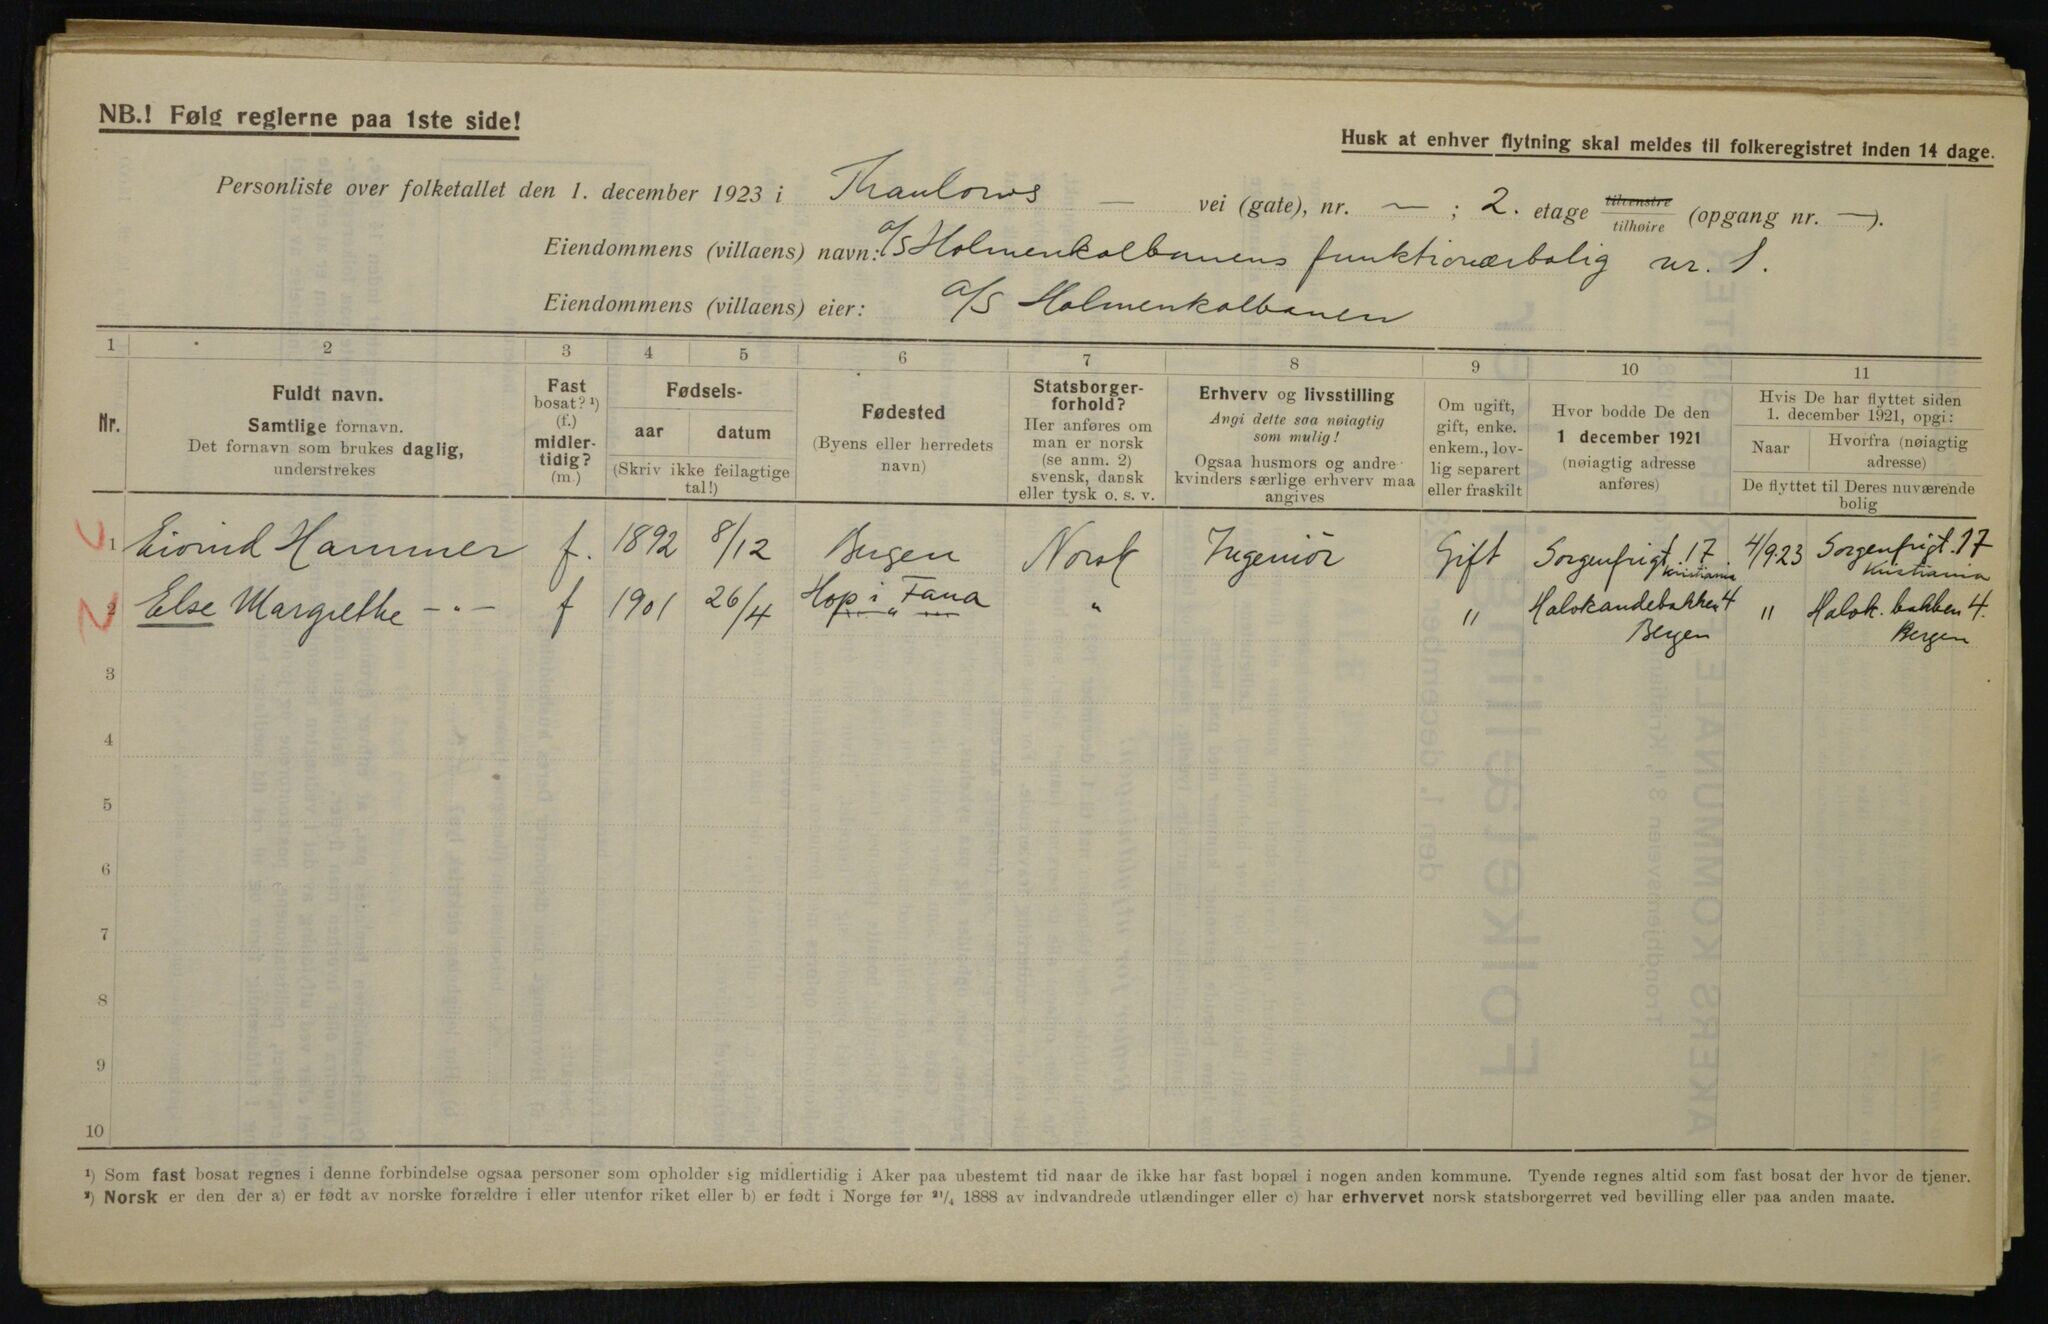 NB.! Følg reglerne paa 1ste side!
Husk at enhver flytning skal meldes til folkeregistret inden 14 dage.
Personliste over folketallet den 1. december 1923 i Thaulows — vei (gate), nr. — ; 2. etage tilvenstre tilhøire (opgang nr. —).
Eiendommens (villaens) navn: A/S Holmenkolbanens funktionærbolig nr. 1.
Eiendommens (villaens) eier: A/S Holmenkolbanen
1 2 3 4 5 6 7 8 9 10 11
Nr.
Fuldt navn.
Samtlige fornavn.
Det fornavn som brukes daglig,
understrekes
Fast
bosat? ¹)
(f.)
midler-
tidig?
(m.)
Fødsels-
aar datum
(Skriv ikke feilagtige
tal!)
Fødested
(Byens eller herredets
navn)
Statsborger-
forhold?
Her anføres om
man er norsk
(se anm. 2)
svensk, dansk
eller tysk o. s. v.
Erhverv og livsstilling
Angi dette saa nøiagtig
som mulig!
Ogsaa husmors og andre
kvinders særlige erhverv maa
angives
Om ugift,
gift, enke.
enkem., lov-
lig separert
eller fraskilt
Hvor bodde De den
1 december 1921
(nøiagtig adresse
anføres)
Hvis De har flyttet siden
1. december 1921, opgi:
Naar
Hvorfra (nøiagtig
adresse)
De flyttet til Deres nuværende
bolig
1 Eivind Hammer f. 1892 8/12 Bergen Norsk Ingeniør Gift Sorgenfrigt. 17 Kristiania 4/9.23 Sorgenfrigt. 17 Kristiania
2 Else Margrethe —"— f 1901 26/4 Hop i Fana " " Halvkandebakken 4 Bergen " Halvk. bakken 4. Bergen
3
4
5
6
7
8
9
10
¹) Som fast bosat regnes i denne forbindelse ogsaa personer som opholder sig midlertidig i Aker paa ubestemt tid naar de ikke har fast bopæl i nogen anden kommune. Tyende regnes altid som fast bosat der hvor de tjener.
²) Norsk er den der a) er født av norske forældre i eller utenfor riket eller b) er født i Norge før ²¹/₄ 1888 av indvandrede utlændinger eller c) har erhvervet norsk statsborgerret ved bevilling eller paa anden maate.